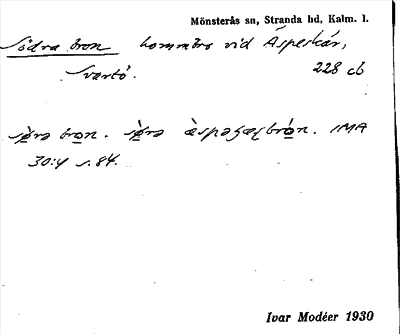 Mönsterås sn, Stranda hd, Kalm. l.
Södra bron bommbro vid Äspeskär,
Svartö. 228 cb
sø̀rə bron. sø̀rə æ̀spəʂæʂbrón. IMA
30:4 s. 84.
Ivar Modéer 1930